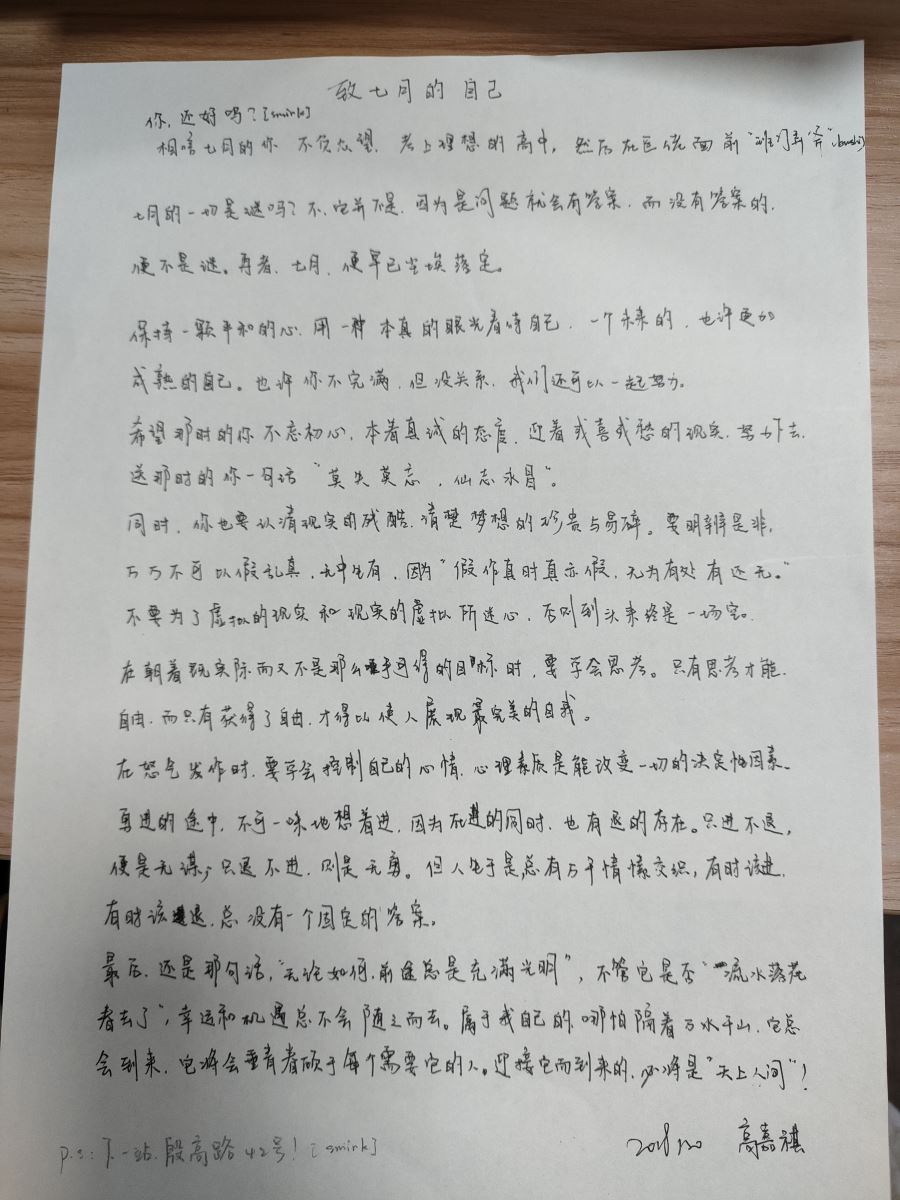 致七月的自己
你,还好吗?[smirk]
相信七月的你 不负众望,考上理想的高中,然后在巨佬面前"班门弄斧"
七月的一切是谜吗?不,它并不是.因为是问题就会有答案,而没有答案的,
便不是谜。再者,七月,便早已尘埃落定。
保持一颗平和的心,用一种本真的眼光看待自己,一个未来的,也许更加
成熟的自己。也许你不完满,但没关系,我们还可以一起努力。
希望那时的你不忘初心,本着真诚的态度,迎着或喜或愁的现实,努力下去.
送那时的你一句话"莫失莫忘,仙志永昌"。
同时,你也要认清现实的残酷,清楚梦想的珍贵与易碎。要明辨是非,
万万不可以假乱真,无中生有,因为"假作真时真亦假,无为有处有还无。"
不要为了虚拟的现实和现实的虚拟所迷心,否则到头来终是一场空。
在朝着既实际而又不是那么唾手可得的目标时,要学会思考。只有思考才能
自由,而只有获得了自由,才得以使人展现最完美的自我。
在怒气发作时,要学会控制自己的心情,心理素质是能改变一切的决定性因素。
勇进的途中,不可一味地想着进,因为在进的同时,也有退的存在。只进不退,
便是无谋;只退不进,则是无勇。但人生于是总有万千情愫交织,有时该进,
有时该退,总没有一个固定的答案。
最后,还是那句话,"无论如何,前途总是充满光明",不管它是否"流水落花
春去了",幸运和机遇总不会随之而去。属于我自己的,哪怕隔着万水千山,它总
会到来,它将会垂青眷顾于每个需要它的人。迎接它而到来的,必将是"天上人间"!
高嘉祺
p.s:下一站,殷高路42号![smirk]